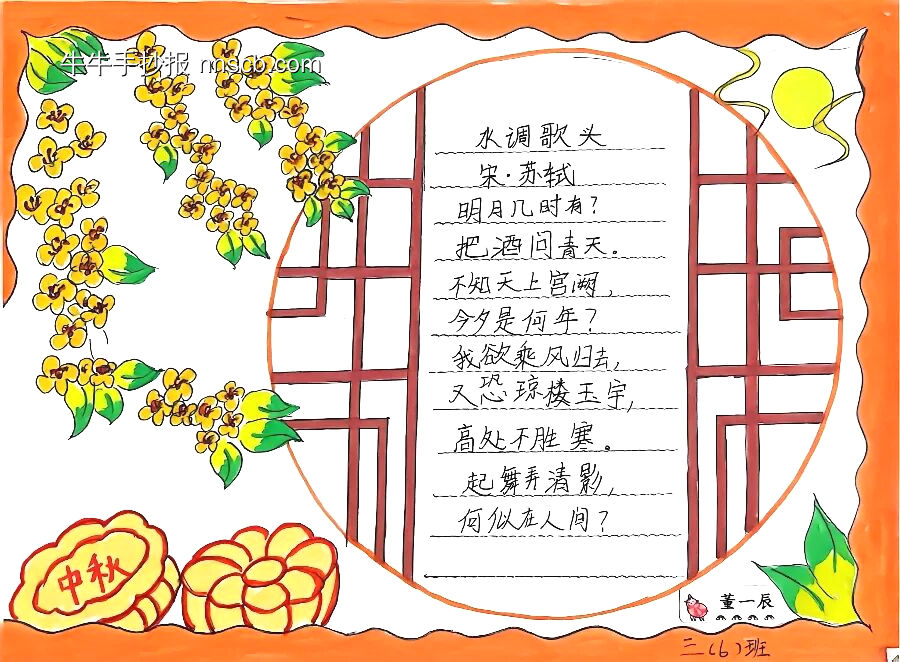 牛牛手抄报 nnscb.com
水调歌头
宋·苏轼
明月几时有？
把酒问青天。
不知天上宫阙，
今夕是何年？
我欲乘风归去，
又恐琼楼玉宇，
高处不胜寒。
起舞弄清影，
何似在人间？
中秋
董一辰
三（6）班